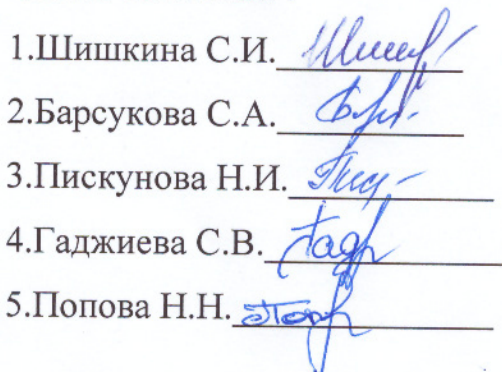 1.Шишкина С.И.
2.Барсукова С.А.
3.Пискунова Н.И.
4.Гаджиева С.В.
5.Попова Н.Н.